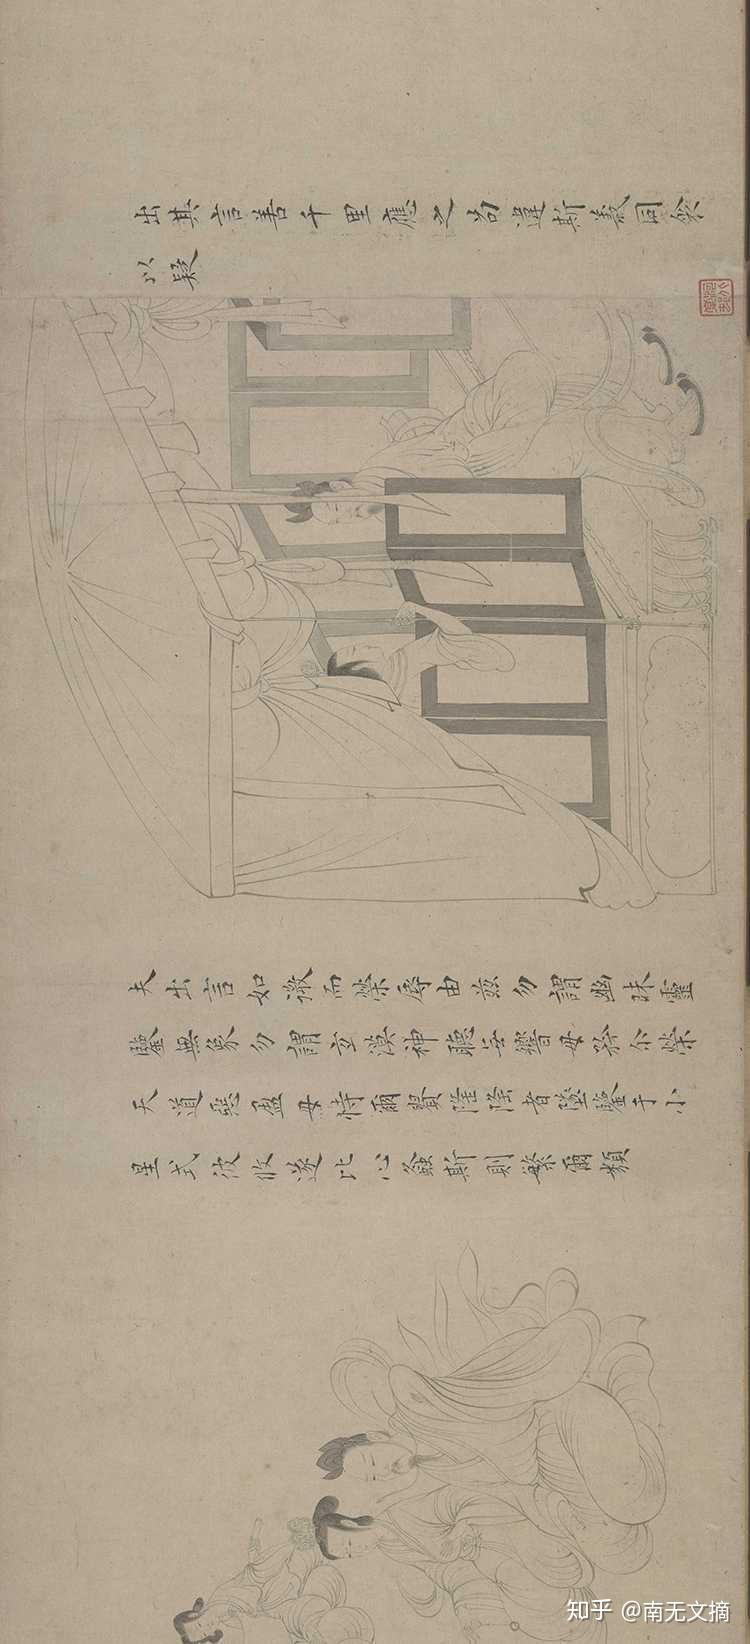 出其言善千里應之苟違斯義同衾
以疑
夫出言如微而榮辱由茲勿謂幽昧靈
鑒無象勿謂玄漠神聽无響毋矜尔榮
天道惡盈毋恃爾貴隆隆者墜鑒于小
星式彼攸遂比心螽斯則繁爾類
知乎 @南无文摘